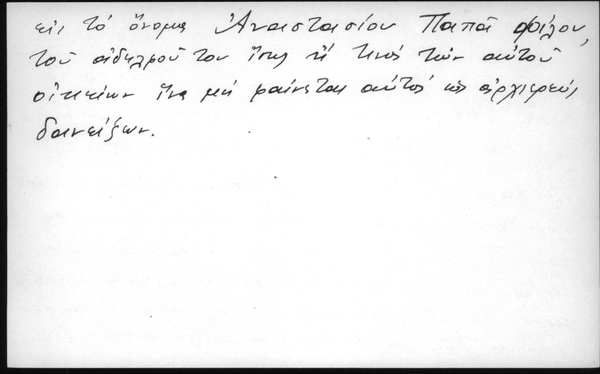 εἰς τὸ ὄνομα Ἀναστασίου Παπᾶ φίλου,
τοῦ ἀδελφοῦ του ἴσως ἤ τινος τῶν αὐτοῦ
οἰκείων ἵνα μὴ φαίνεται αὐτὸς ὡς ἀρχιερεύς
δανείζων.